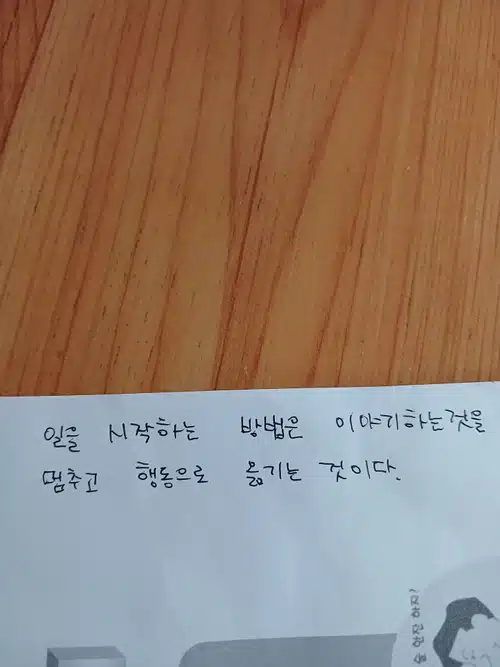 일을 시작하는 방법은 이야기하는것을
멈추고 행동으로 옮기는 것이다.